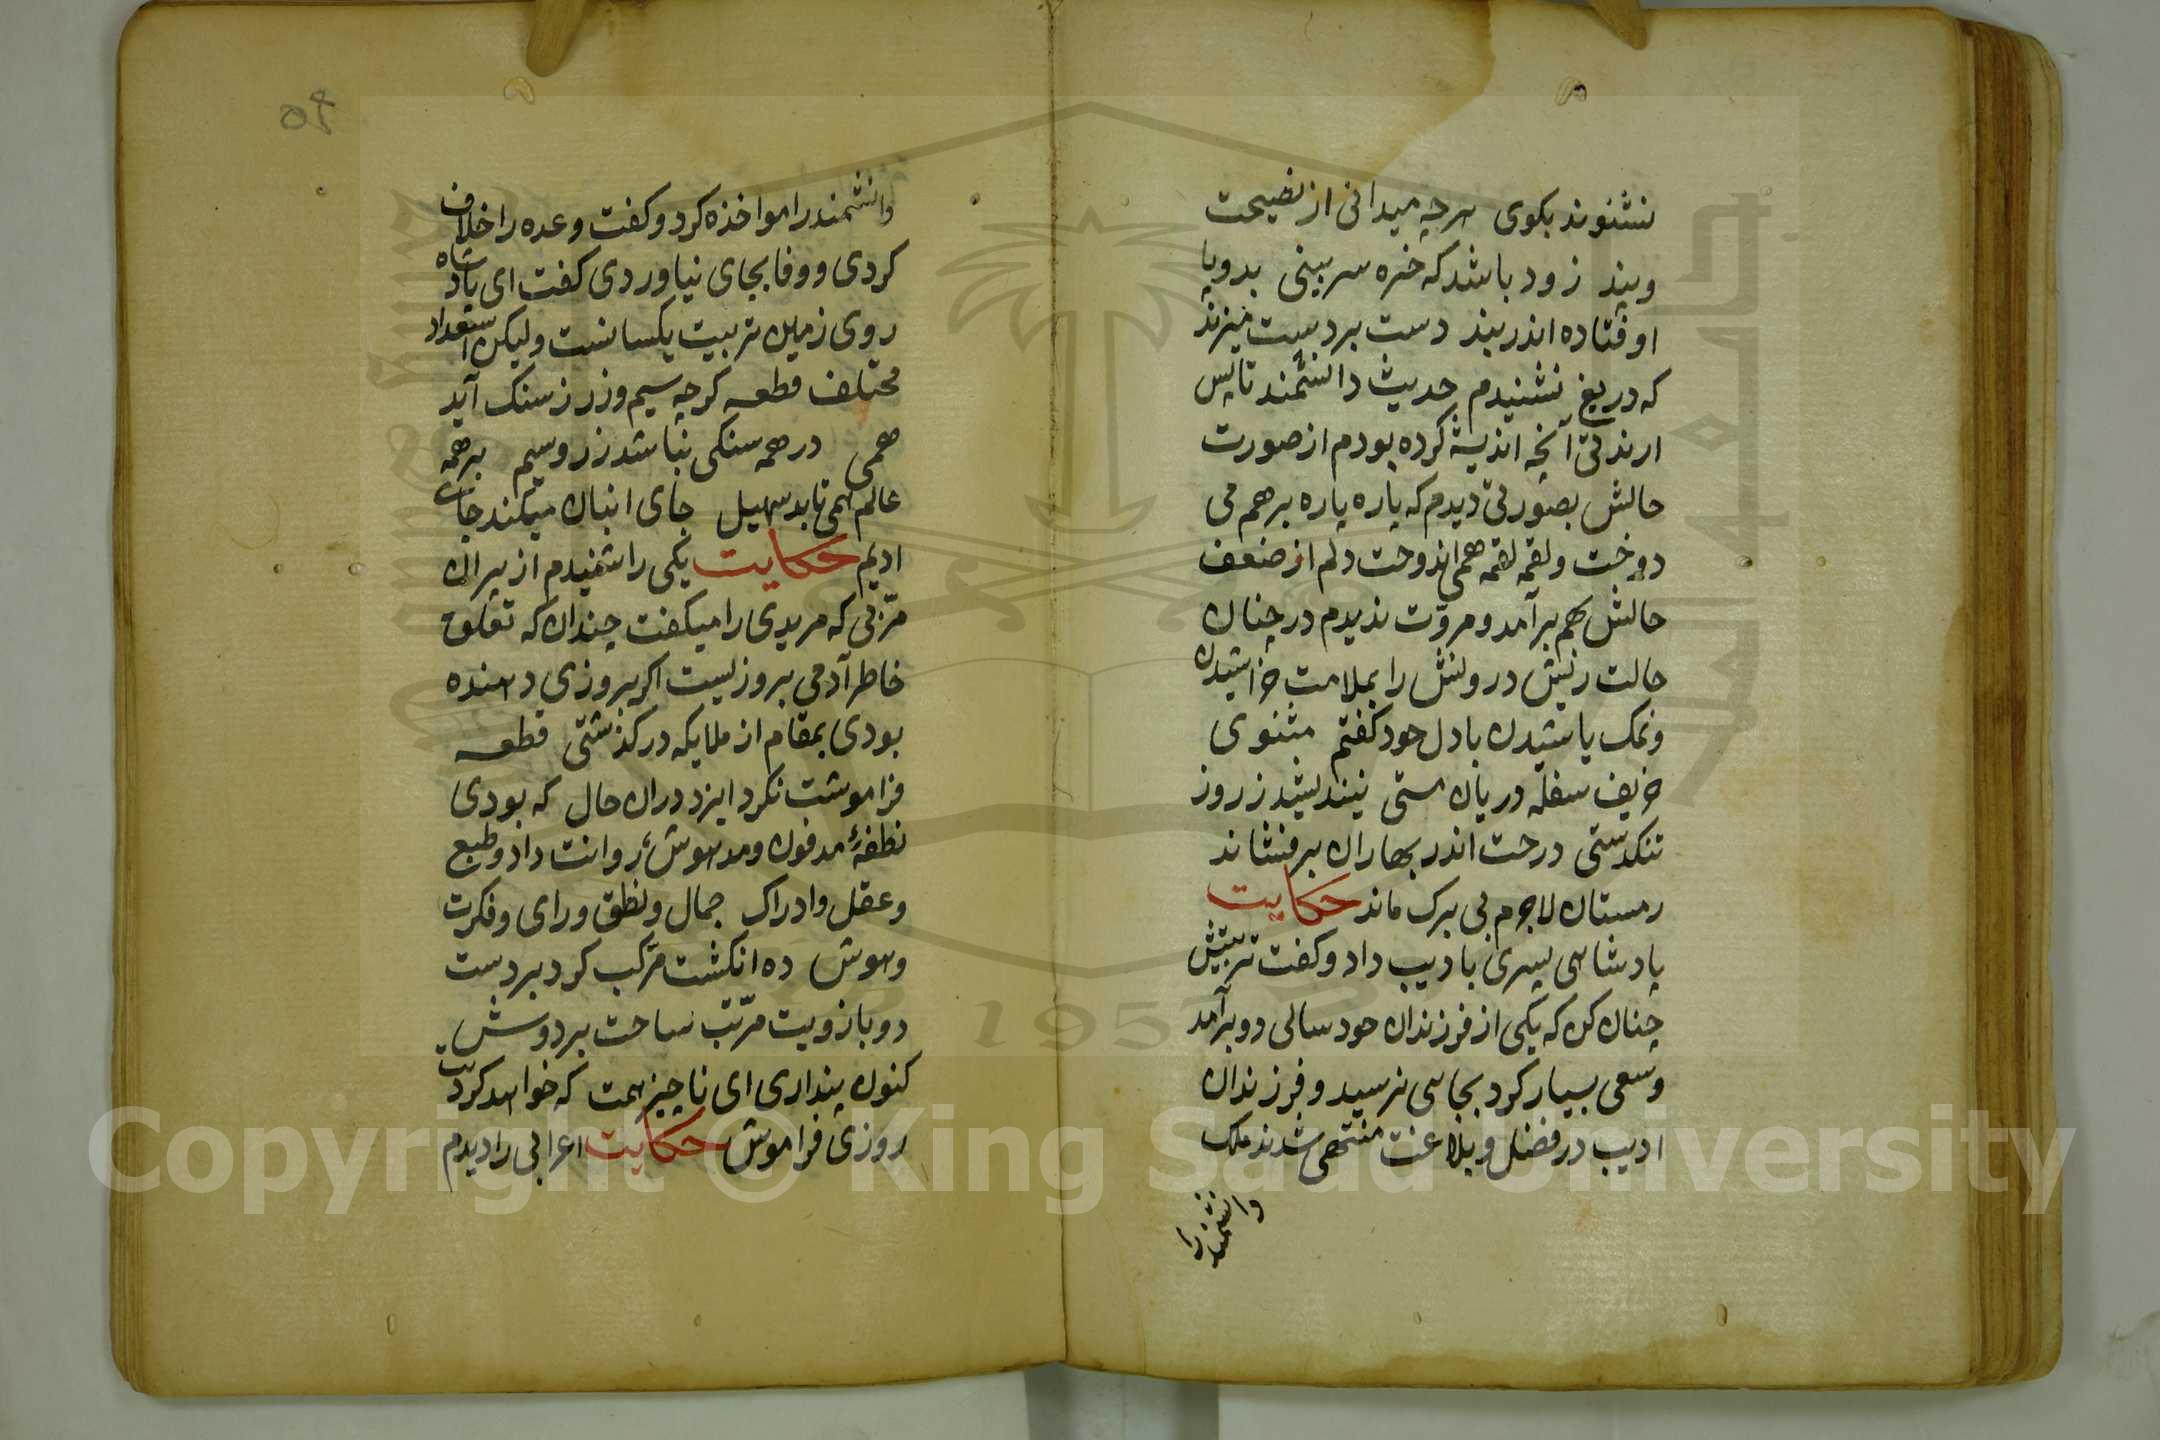 نشنوند بکوی هرچه میدانی از نصیحت
وپند زود باشد که خیره سر بینی بدو پا
اوفتاده اندر بند دست بر دست میزند
که دریغ نشنیدم حدیث دانشمند تا پس
از مدتی آنچه اندیشه کرده بودم از صورت
حالش بصورتی دیدم که پاره پاره برهم می
دوخت و لقمه لقمه همی اندوخت دلم از ضعف
حالش بهم برآمد و مروّت ندیدم در چنان
حالت ریش درویش را بملامت خراشیدن
ونمک پاشیدن با دل خود کفتم مثنوی
حریف سفله در پان مستی نیندیشد ز روز
تنکدستی درخت اندر بهاران برفشاند
زمستان لاجرم بی برک ماند حکایت
پادشاهی پسری بادیب داد وکفت تربیتش
چنان کن که یکی از فرزندان خود سالی دو برآمد
وسعی بسیار کرد بجایی نرسید و فرزندان
ادیب در فضل و بلاغت منتهی شدند ملک
دانشمند را
۶۵
دانشمند را مواخذه کرد وکفت وعده را خلاف
کردی و وفا بجای نیاوردی کفت ای پادشاه
روی زمین تربیت یکسانست ولیکن استعداد
مختلف قطعه کرچه سیم وزر ز سنک آید
همی در همه سنکی نباشد زر وسیم برهمه
عالم همی تابد سهیل جای انبان میکند جای
ادیم حکایت یکی را شنیدم از پیران
مرّبی که مریدی را میکفت چندان که تعلق
خاطر آدمی بروزیست اکر بروزی دهنده
بودی بمقام از ملایکه درکذشتی قطعه
فراموشت نکرد ایزد دران حال که بودی
نطفهٔ مدفون و مدهوش روانت داد وطبع
وعقل وادراک جمال ونطق ورای وفکرت
وهوش ده انکشت مرّکب کرد بر دست
دو بازویت مرّتب ساخت بر دوش
کنون پنداری ای ناچیز همت که خواهد کردنت
روزی فراموش حکایت اعرابی را دیدم
1957
Copyright © King Saud University